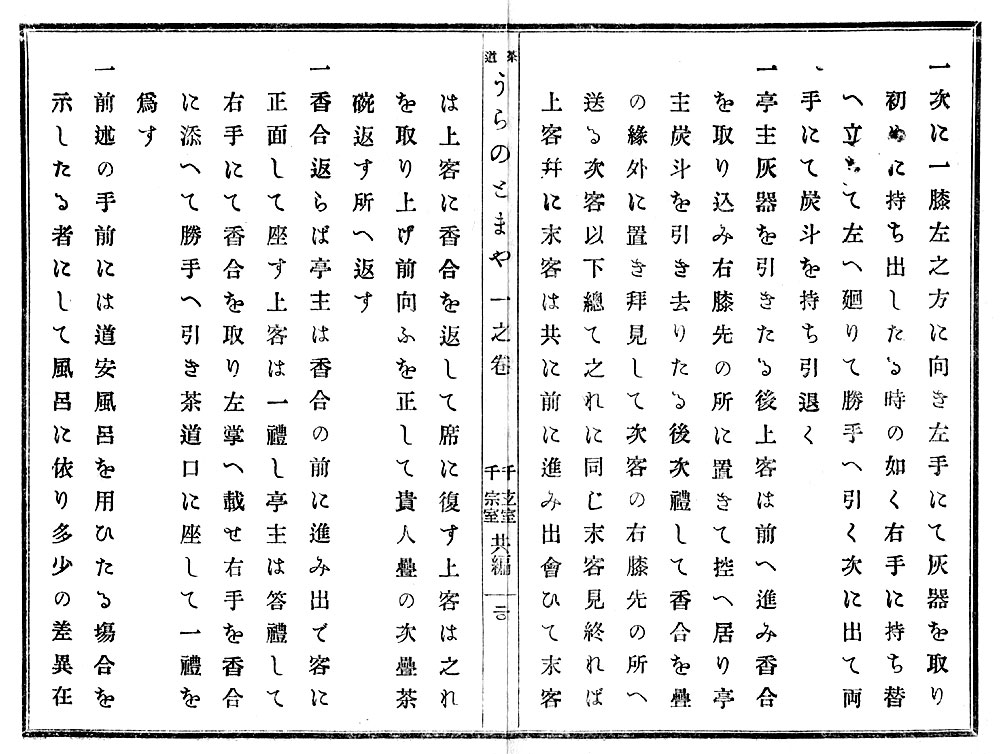 一次に一膝左之方に向き左手にて灰器を取り
初めに持ち出したる時の如く右手に持ち替
へ立ちて左へ廻りて勝手へ引く次に出て両
手にて炭斗を持ち引退く
一亭主灰器を引きたる後上客は前へ進み香合
を取り込み右膝先の所に置きて控へ居り亭
主炭斗を引き去りたる後次禮して香合を疊
の緣外に置き拜見して次客の右膝先の所へ
送る次客以下總て之れに同じ末客見終れば
上客幷に末客は共に前に進み出會ひて末客
茶道 うらのとまや 一之卷 千玄室 千宗室 共編
は上客に香合を返して席に復す上客は之れ
を取り上げ前向ふを正して貴人疊の次疊茶
碗返す所へ返す
一香合返らば亭主は香合の前に進み出で客に
正面して座す上客は一禮し亭主は答禮して
右手にて香合を取り左掌へ載せ右手を香合
に添へて勝手へ引き茶道口に座して一禮を
爲す
一前述の手前には道安風呂を用ひたる塲合を
示したる者にして風呂に依り多少の差異在